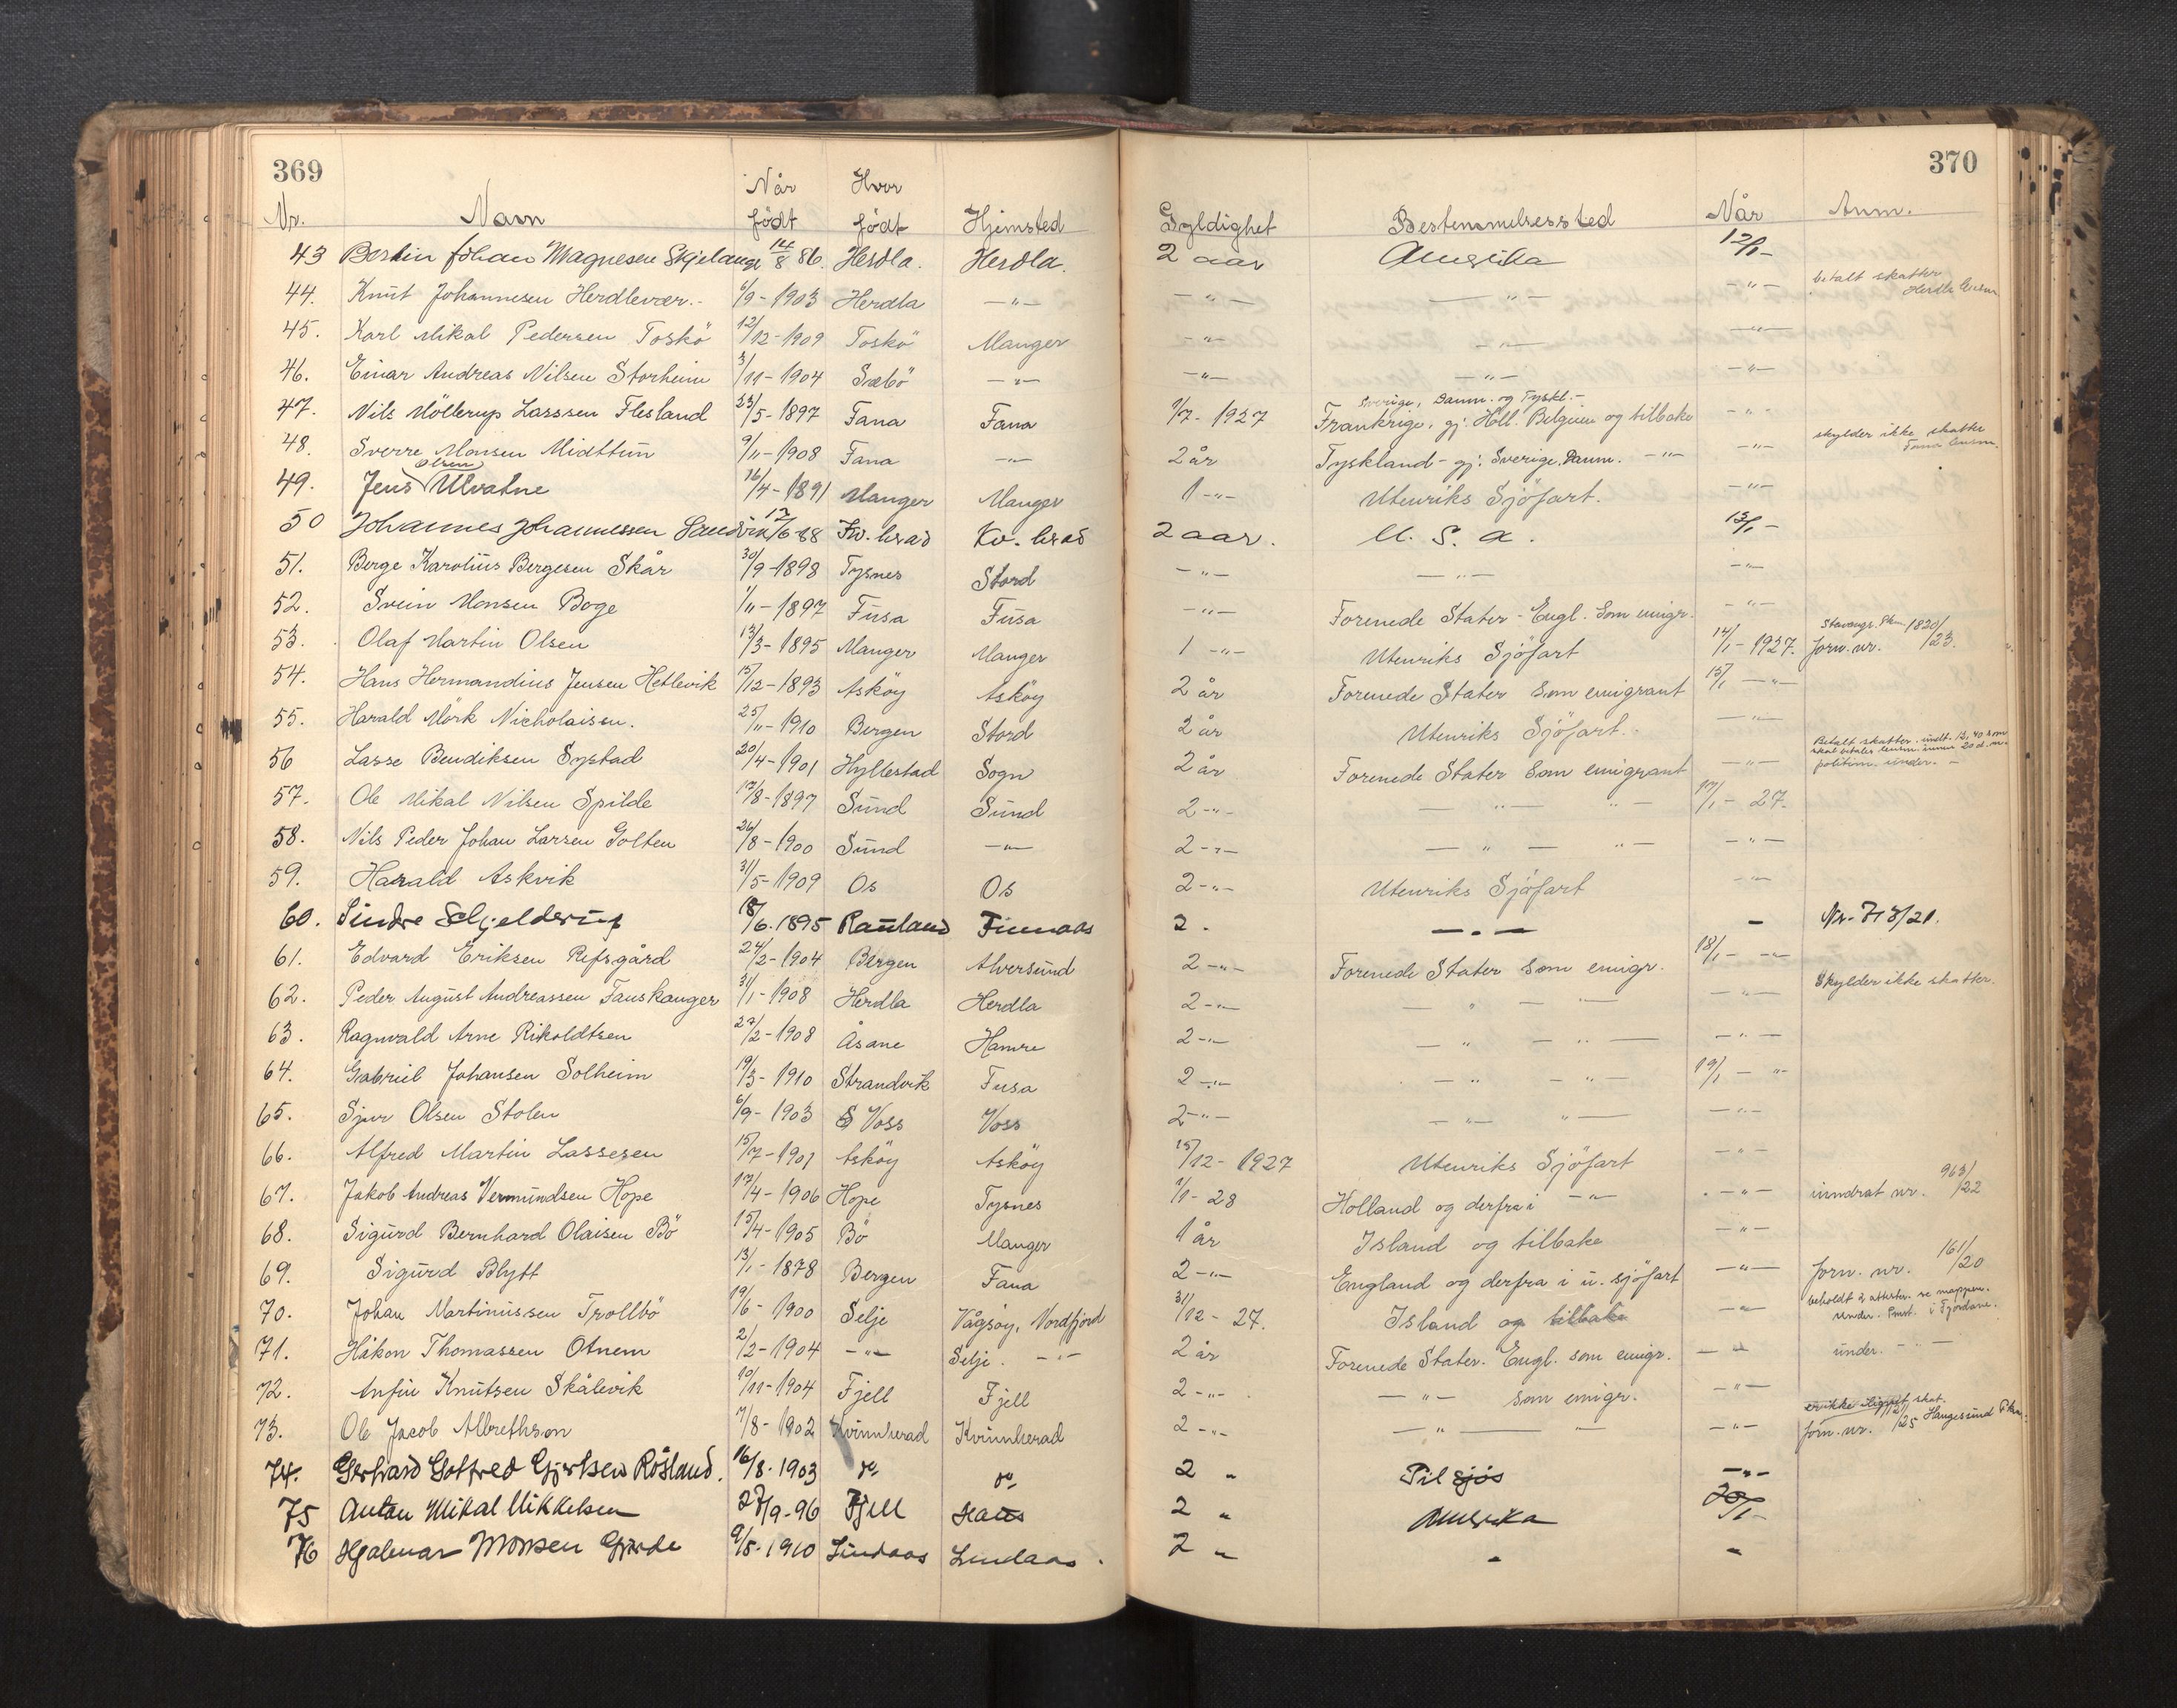 369
370
Nr. Navn Når født Hvor født Hjemsted Gyldighet Bestemmelsessted Når Anm.
43 Bertin Johan Magnesen Skjelanger 14/8 86. Herdla. Herdla. 2 aar Amerika 12/1-
44. Knut Johannesen Herdlevær.- 6/9-1903 Herdla -"- -"- -"- -"- betalt skatter Herdla lensm.
45. Karl Mikal Pedersen Toskö 12/12-1909 Toskö Manger -"- -"- -"-
46. Einar Andreas Nilsen Storheim 3/11-1904 Sæbö -"- -"- -"- -"-
47. Nils Möllerup Larssen Flesland 23/5-1897 Fana Fana 1/7-1927 Frankrige, gj. Sverige, Danm. og Tyskl.- Holl. Belgien og tilbake -"-
48. Sverre Monsen Midttun 9/11-1908 Fana -"- 2 år Tyskland - gj: Sverige, Danm. -"- -"- skylder ikke skatter Fana lensm.
49. Jens Olsen Ulvatne 16/4-1891 Manger Manger 1 -"- Utenriks Sjöfart. -"-
50 Johannes Johannessen Sandvik 17/6-88 Kv. herad Kv. herad 2 aar. U. S. A. 13/1-
51. Berge Karolius Bergesen Skår 30/9-1898 Tysnes Stord -"- -"- -"-
52. Svein Monsen Boge 1/11-1897 Fusa Fusa -"- Forenede Stater - Engl. Som emigr. -"-
53. Olaf Martin Olsen 13/3-1895 Manger Manger 1 -"- Utenriks Sjöfart 14/1-1927. Stavangr. Pkm. forn. nr. 1820/23.
54. Hans Hermandius Jensen Hetlevik 15/12-1893 Asköy Asköy 2 år Forenede Stater Som emigrant 15/1 -"-
55. Harald Mörk Nicholaisen. 25/11-1910 Bergen Stord 2 år Utenriks Sjöfart. -"-
56 Lasse Bendiksen Systad 20/4-1901 Hyllestad Sogn 2 år Forenede Stater Som emigrant -"- Betalt skatter. undt. 13,40 som skal betales lensm. innen 20 d. m. politim. under. -
57. Ole Mikal Nilsen Spilde 17/8-1897 Sund Sund 2 -"- -"- "- 17/1-27.
58. Nils Peder Johan Larsen Golten 26/8-1900 Sund -"- 2 -"- -"- "- -"-
59. Harald Askvik 31/5-1909 Os Os 2 -"- Utenriks Sjöfart -"-
60. Sindre Schjelderup 18/6.1895 Rauland Finnaas 2. -"- - Nr. 713/21.
61. Edvard Eriksen Refsgård 24/2-1904 Bergen Alversund 2 -"- Forenede Stater Som emigr. 18/1- -"-
62. Peder August Andreassen Fauskanger 31/1-1908 Herdla Herdla 2 -"- -"- -"- -"- Skylder ikke skatter.
63. Ragnvald Arne Rikoldtsen 27/2-1908 Åsane Hamre 2 -"- -"- -"- -"-
64. Gabriel Johansen Solheim 19/3-1910 Strandvik Fusa 2 -"- -"- -"- 19/1- "-
65. Sjur Olsen Stolen 6/9-1903 Voss Voss 2 -"- -"- "- -"-
66. Alfred Martin Lassesen 15/7-1901 Asköy Asköy 15/12-1927 Utenriks Sjöfart -"-
67. Jakob Andreas Vermundsen Hope 17/4-1906 Hope Tysnes 1/1-28 Holland og derfra i -"- -"- inndrat nr. 963/22
68. Sigurd Bernhard Olaisen Bö 15/4-1905 Bö Manger 1 år Island og tilbake -"-
69. Sigurd Blytt 13/1-1878 Bergen Fana 2 -"- England og derfra i u. sjöfart -"- forn. nr. 161/20
70. Johan Martinussen Trollbö 19/6-1900 Selje Vågsöy, Nordfjord 31/12-27. Island og tilbake -"- beholdt 2 attester. se mappen. under. Pmst. i Fjordane.
71. Håkon Thomassen Otnem 2/2-1904 -"- Selje. -"- 2 år Forenede Stater. Engl. som emigr. -"- under. -"-
72. Anfin Knutsen Skålevik 10/11-1904 Fjell Fjell 2 -"- -"- som emigr. -"-
73. Ole Jacob Albrethson 7/8-1902 Kvinnherad Kvinnherad 2 -"- -"- "- -"- er ikke lignet skat. forn. nr. /25 Haugesund Pkm.
74. Gerhard Gotfred Gjertsen Røsland. 16/8.1903 do. do. 2 " Til sjøs -"-
75 Anton Mikal Mikkelsen 27/9-96 Fjell Haus 2 " Amerika 20/1-
76 Hjalmar Monsen Gjerde 9/5-1910 Lindaas Lindaas. 2 " - -